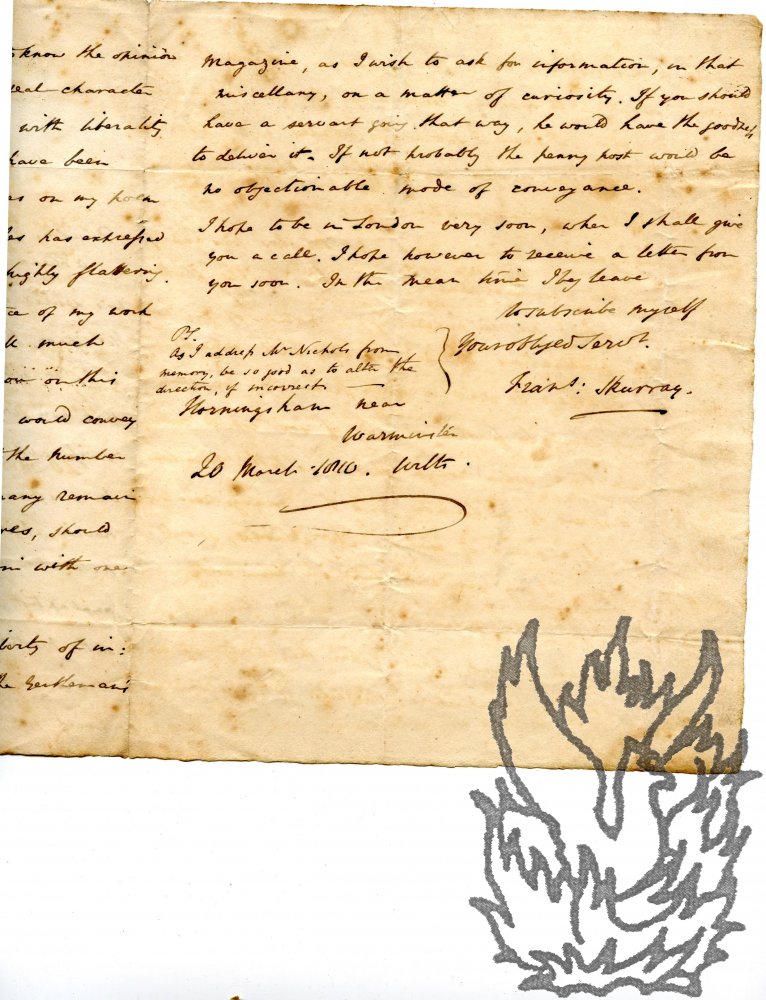 know the opinion
real character
with liberality
have been
es on my poem
les has expressed
highly flattering.
ce of my work
ll much
on this
would convey
the number
many remain
should
with one
of in:
the Gentleman's
Magazine, as I wish to ask for information, in that
miscellany, on a matter of curiosity. If you should
have a servant going that way, he would have the goodness
to deliver it. If not probably the penny post would be
no objectionable mode of conveyance.
I hope to be in London very soon, when I shall give
you a call. I hope however to receive a letter from
you soon. In the mean time I beg leave
to subscribe myself
Your obliged Servt.
Frans: Skurray.
PS.
As I address Mr Nichols from
memory, be so good as to alter the
direction, if incorrect —
Horningsham near
Warminster
20 March 1810. Wilts.